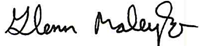 Glenn Maley